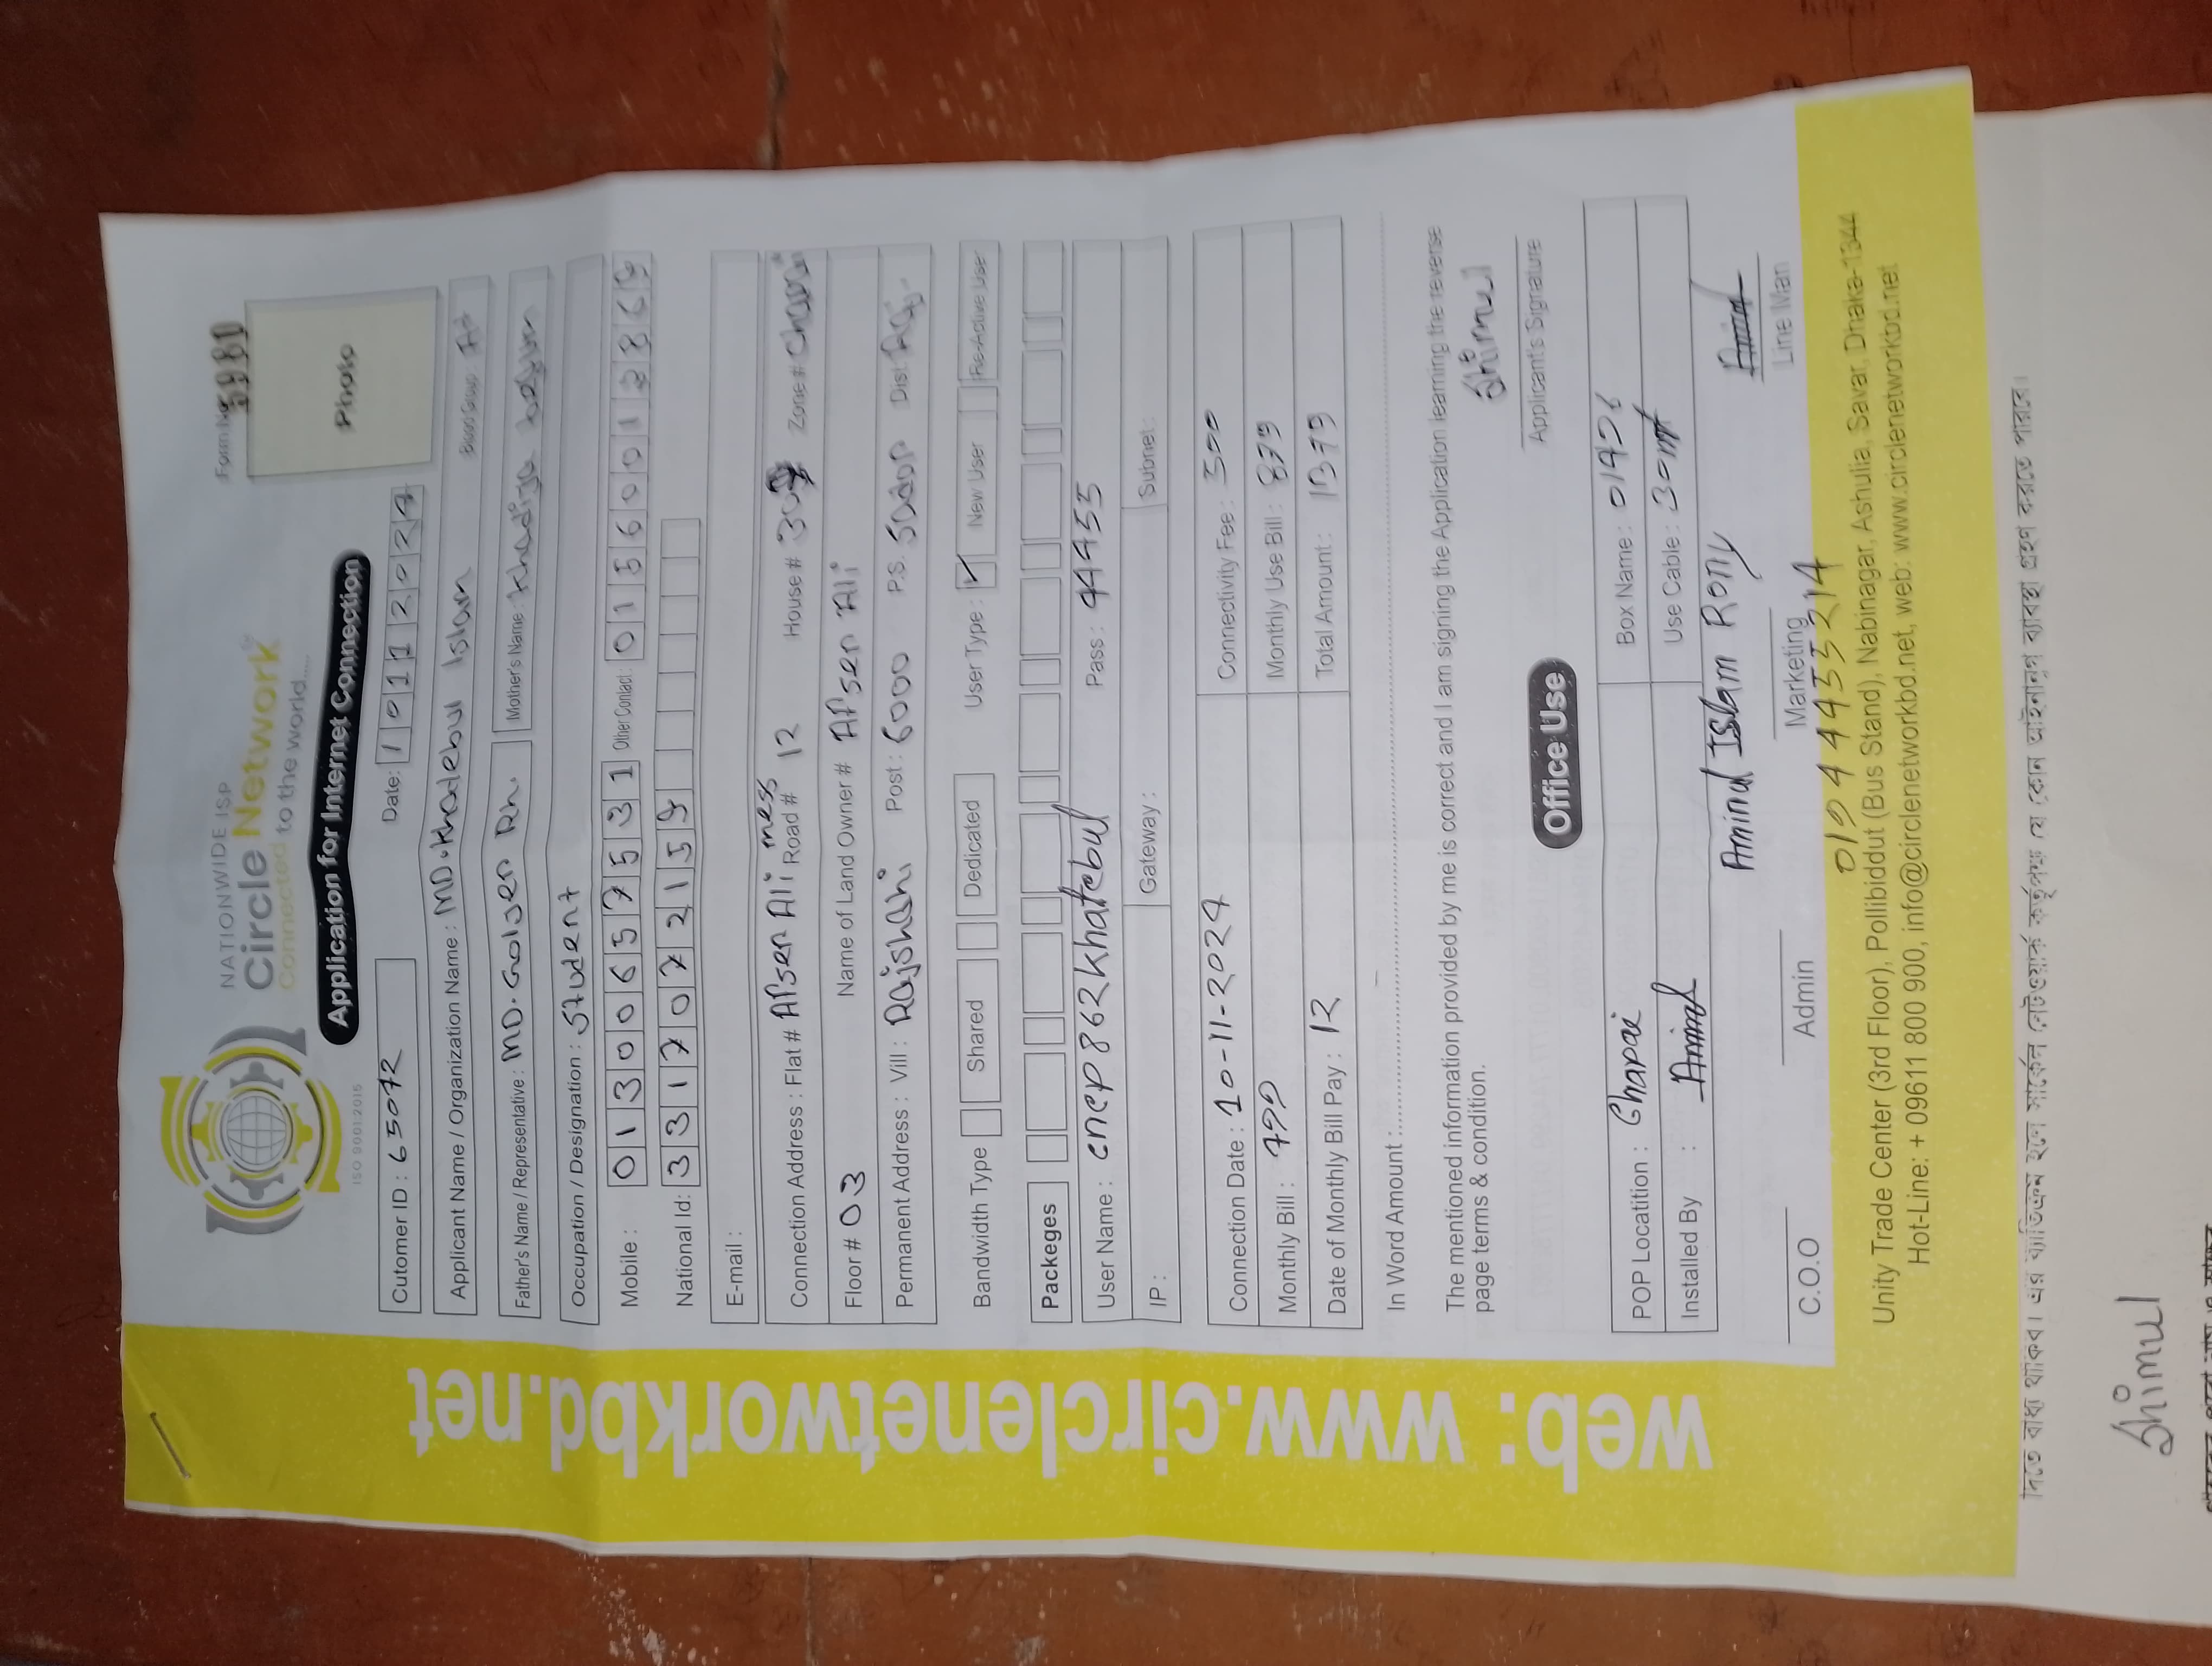 Form No. 5980
NATIONWIDE ISP
Circle Network
Connected to the world.....
ISO 9001:2015
Application for Internet Connection
Photo
Cutomer ID : 65072 Date: 10112024
Applicant Name / Organization Name : MD. Khadebul Islam Blood Group :
Father's Name / Representative : MD. Golser Rh. Mother's Name : Khadiza begum
Occupation / Designation : Student
Mobile : 01300657531 Other Contact:
National Id: 3317072159
E-mail :
Connection Address : Flat # Afser Ali mess Road # 12 House # Zone #
Floor # 03 Name of Land Owner # Afser Ali
Permanent Address : Vill : Rajshahi Post : 6000 P.S. Sadar Dist Raj-
Bandwidth Type Shared Dedicated User Type : ✓ New User Re-Active User
Packeges
User Name : cnep862khatebul Pass : 44455
IP : Gateway : Subnet :
Connection Date : 10-11-2024 Connectivity Fee : 500
Monthly Bill : 799 Monthly Use Bill : 879
Date of Monthly Bill Pay : 12 Total Amount : 1379
In Word Amount :
The mentioned information provided by me is correct and I am signing the Application learning the reverse
page terms & condition.
Shimul
Applicant's Signature
Office Use
POP Locatition : Chapai Box Name :
Installed By : Aminul Use Cable : 30mt
Aminul Islam Rony
C.O.O Admin Marketing Line Man
01944455214
Unity Trade Center (3rd Floor), Pollibiddut (Bus Stand), Nabinagar, Ashulia, Savar, Dhaka-1344
Hot-Line: + 09611 800 900, info@circlenetworkbd.net, web: www.circlenetworkbd.net
web: www.circlenetworkbd.net
দিতে বাধ্য থাকিব। এর ব্যতিক্রম হলে সার্কেল নেটওয়ার্ক কর্তৃপক্ষ যে কোন আইনানুগ ব্যবস্থা গ্রহণ করতে পারবে।
Shimul